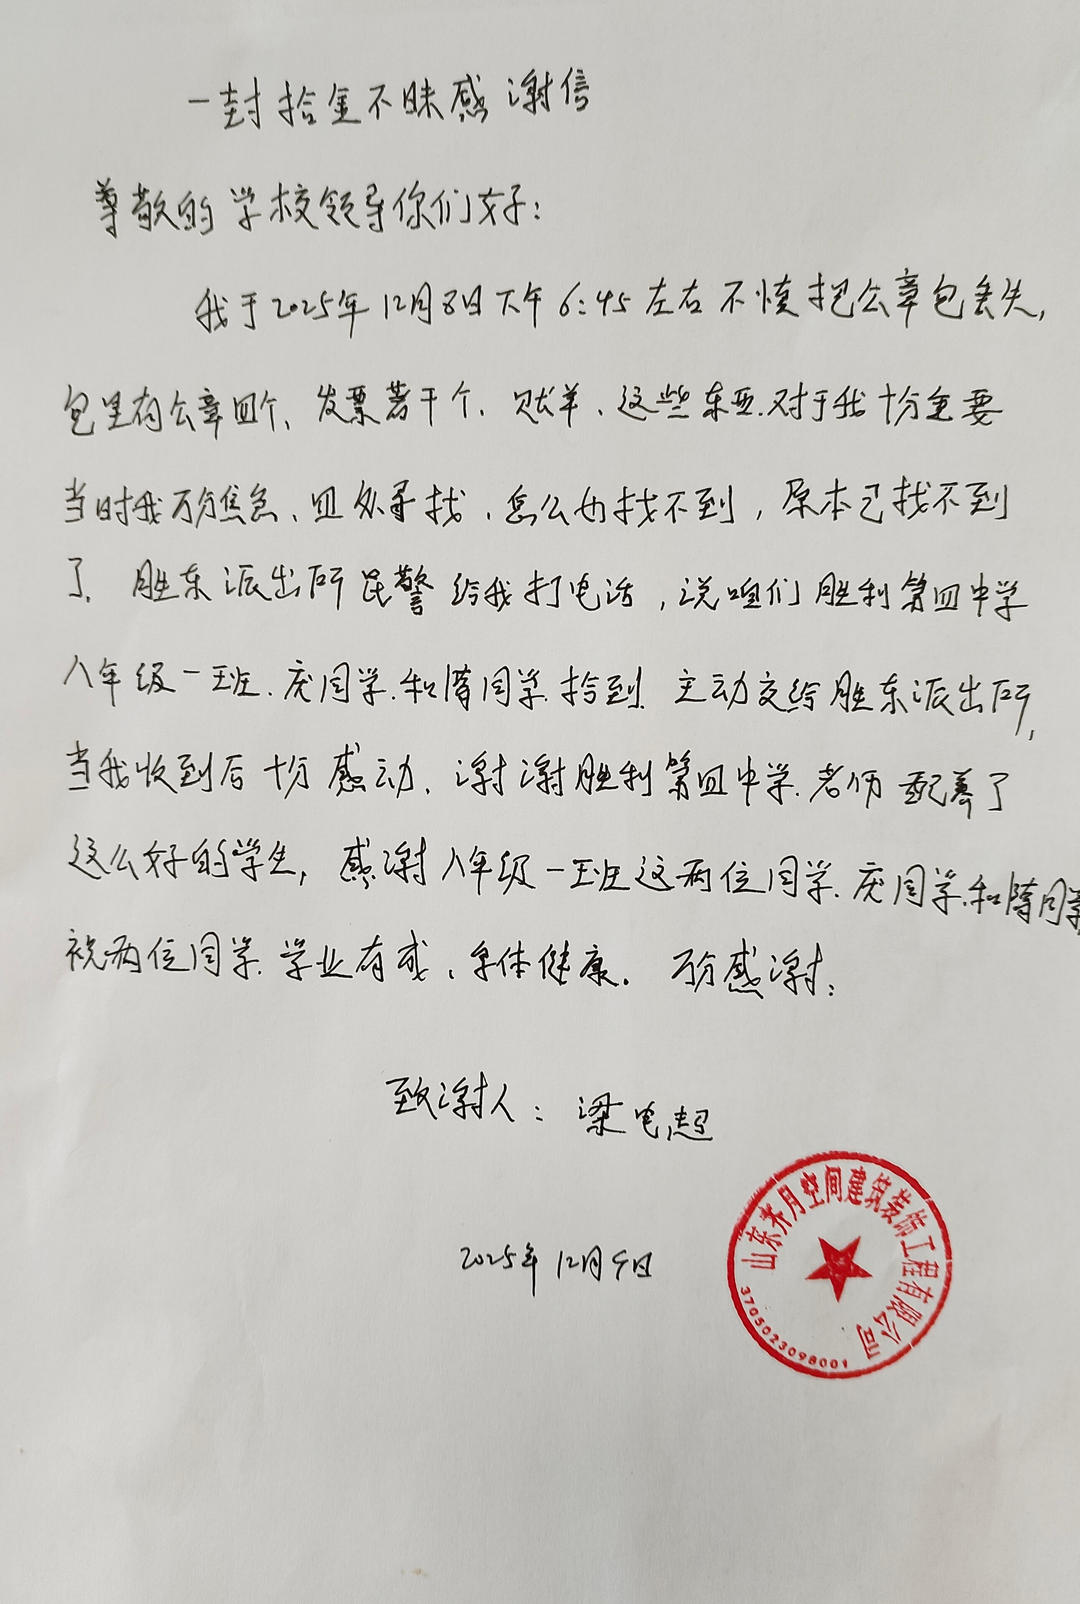 一封拾金不昧感谢信
尊敬的学校领导你们好:
我于2025年12月8日下午6:45左右不慎把公章包丢失,
包里有公章四个、发票若干个、等、这些东西.对于我十分重要
当时我万分焦急、四处寻找、怎么也找不到,原本已找不到
了、胜东派出所民警给我打电话,说咱们胜利第四中学
八年级一班.庞同学.和隋同学.拾到.主动交给胜东派出所,
当我收到后十分感动、谢谢胜利第四中学.老师配养了
这么好的学生,感谢八年级一班这两位同学.庞同学.和隋同学
祝两位同学.学业有成、身体健康。万分感谢:
致谢人:梁电超
2025年12月9日
山东齐月空间建筑装饰工程有限公司
3705023098001